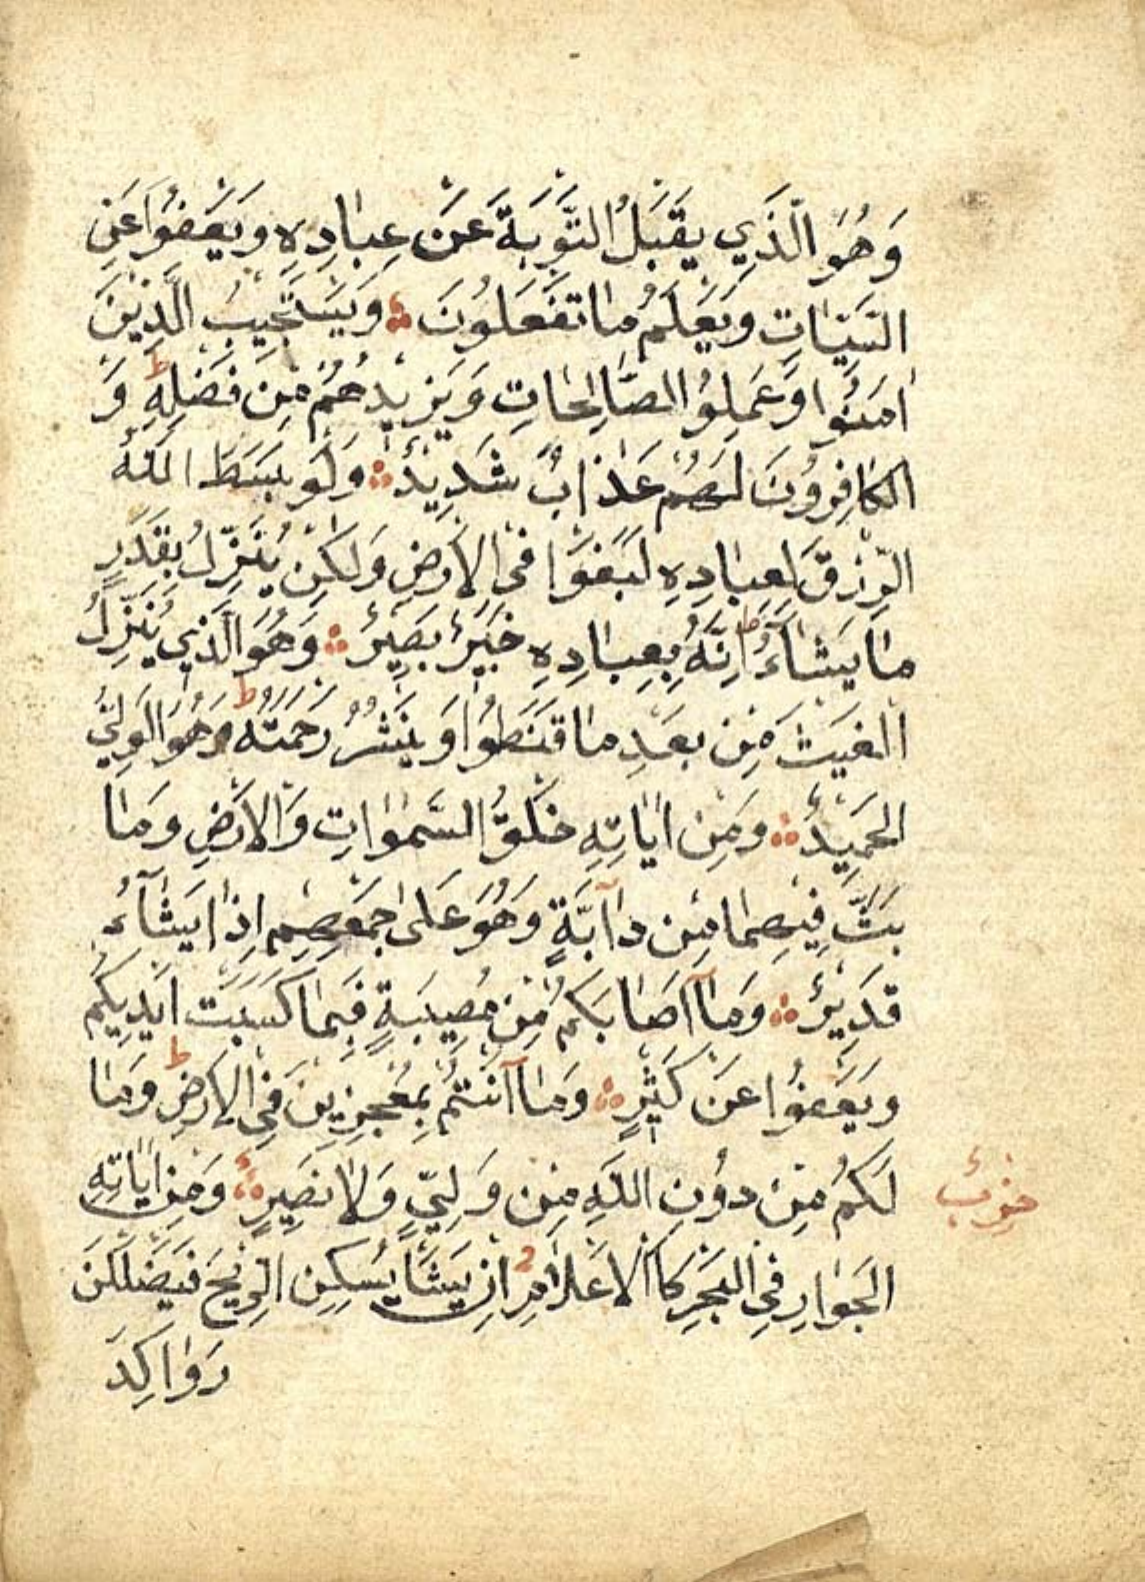 وَهُوَ الَّذِي يَقْبَلُ التَّوْبَةَ عَنْ عِبَادِهِ وَيَعْفُوا عَنِ
السَّيِّئَاتِ وَيَعْلَمُ مَا تَفْعَلُونَ ۞ وَيَسْتَجِيبُ الَّذِينَ
اٰمَنُوا وَعَمِلُوا الصَّالِحَاتِ وَيَزِيدُهُمْ مِنْ فَضْلِهِ ط وَ
الْكَافِرُونَ لَهُمْ عَذَابٌ شَدِيدٌ ۞ وَلَوْ بَسَطَ اللّٰهُ
الرِّزْقَ لِعِبَادِهِ لَبَغَوْا فِي الْاَرْضِ وَلٰكِنْ يُنَزِّلُ بِقَدَرٍ
مَا يَشَآءُ ط اِنَّهُ بِعِبَادِهِ خَبِيرٌ بَصِيرٌ ۞ وَهُوَ الَّذِي يُنَزِّلُ
الْغَيْثَ مِنْ بَعْدِ مَا قَنَطُوا وَيَنْشُرُ رَحْمَتَهُ ط وَهُوَ الْوَلِيُّ
الْحَمِيدُ ۞ وَمِنْ اٰيَاتِهِ خَلْقُ السَّمٰوَاتِ وَالْاَرْضِ وَمَا
بَثَّ فِيهِمَا مِنْ دَآبَّةٍ وَهُوَ عَلٰى جَمْعِهِمْ اِذَا يَشَآءُ
قَدِيرٌ ۞ وَمَآ اَصَابَكُمْ مِنْ مُصِيبَةٍ فَبِمَا كَسَبَتْ اَيْدِيكُمْ
وَيَعْفُوا عَنْ كَثِيرٍ ۞ وَمَآ اَنْتُمْ بِمُعْجِزِينَ فِي الْاَرْضِ ط وَمَا
لَكُمْ مِنْ دُونِ اللّٰهِ مِنْ وَلِيٍّ وَلَا نَصِيرٍ ۞ وَمِنْ اٰيَاتِهِ
حزب
الْجَوَارِ فِي الْبَحْرِ كَالْاَعْلَامِ اِنْ يَشَأْ يُسْكِنِ الرِّيحَ فَيَظْلَلْنَ
رَوَاكِدَ